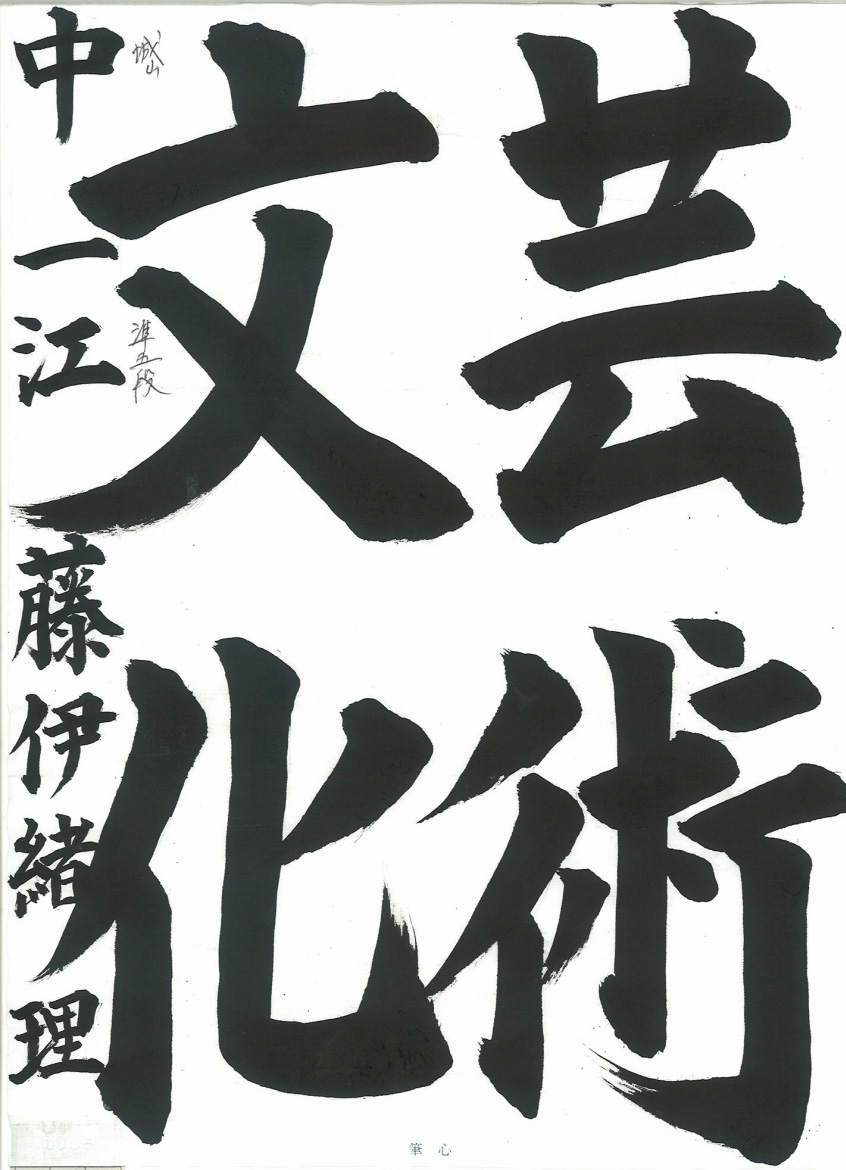 芸術
文化
中一 江藤伊緒理
城山
準五段
筆心